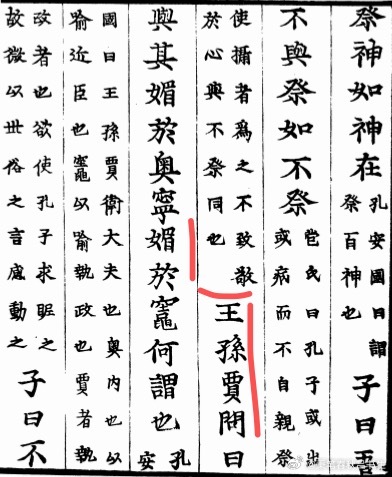 祭神如神在孔安國曰謂
祭百神也子曰吾
不與祭如不祭苞氏曰孔子或出
或病而不自親祭
使攝者爲之不致敬
於心與不祭同也王孫賈問曰
與其媚於奧寧媚於竈何謂也孔
安
國曰王孫賈衛大夫也奧內也以
喻近臣也竈以喻執政也賈者執
政者也欲使孔子求昵之
故微以世俗之言感動之子曰不